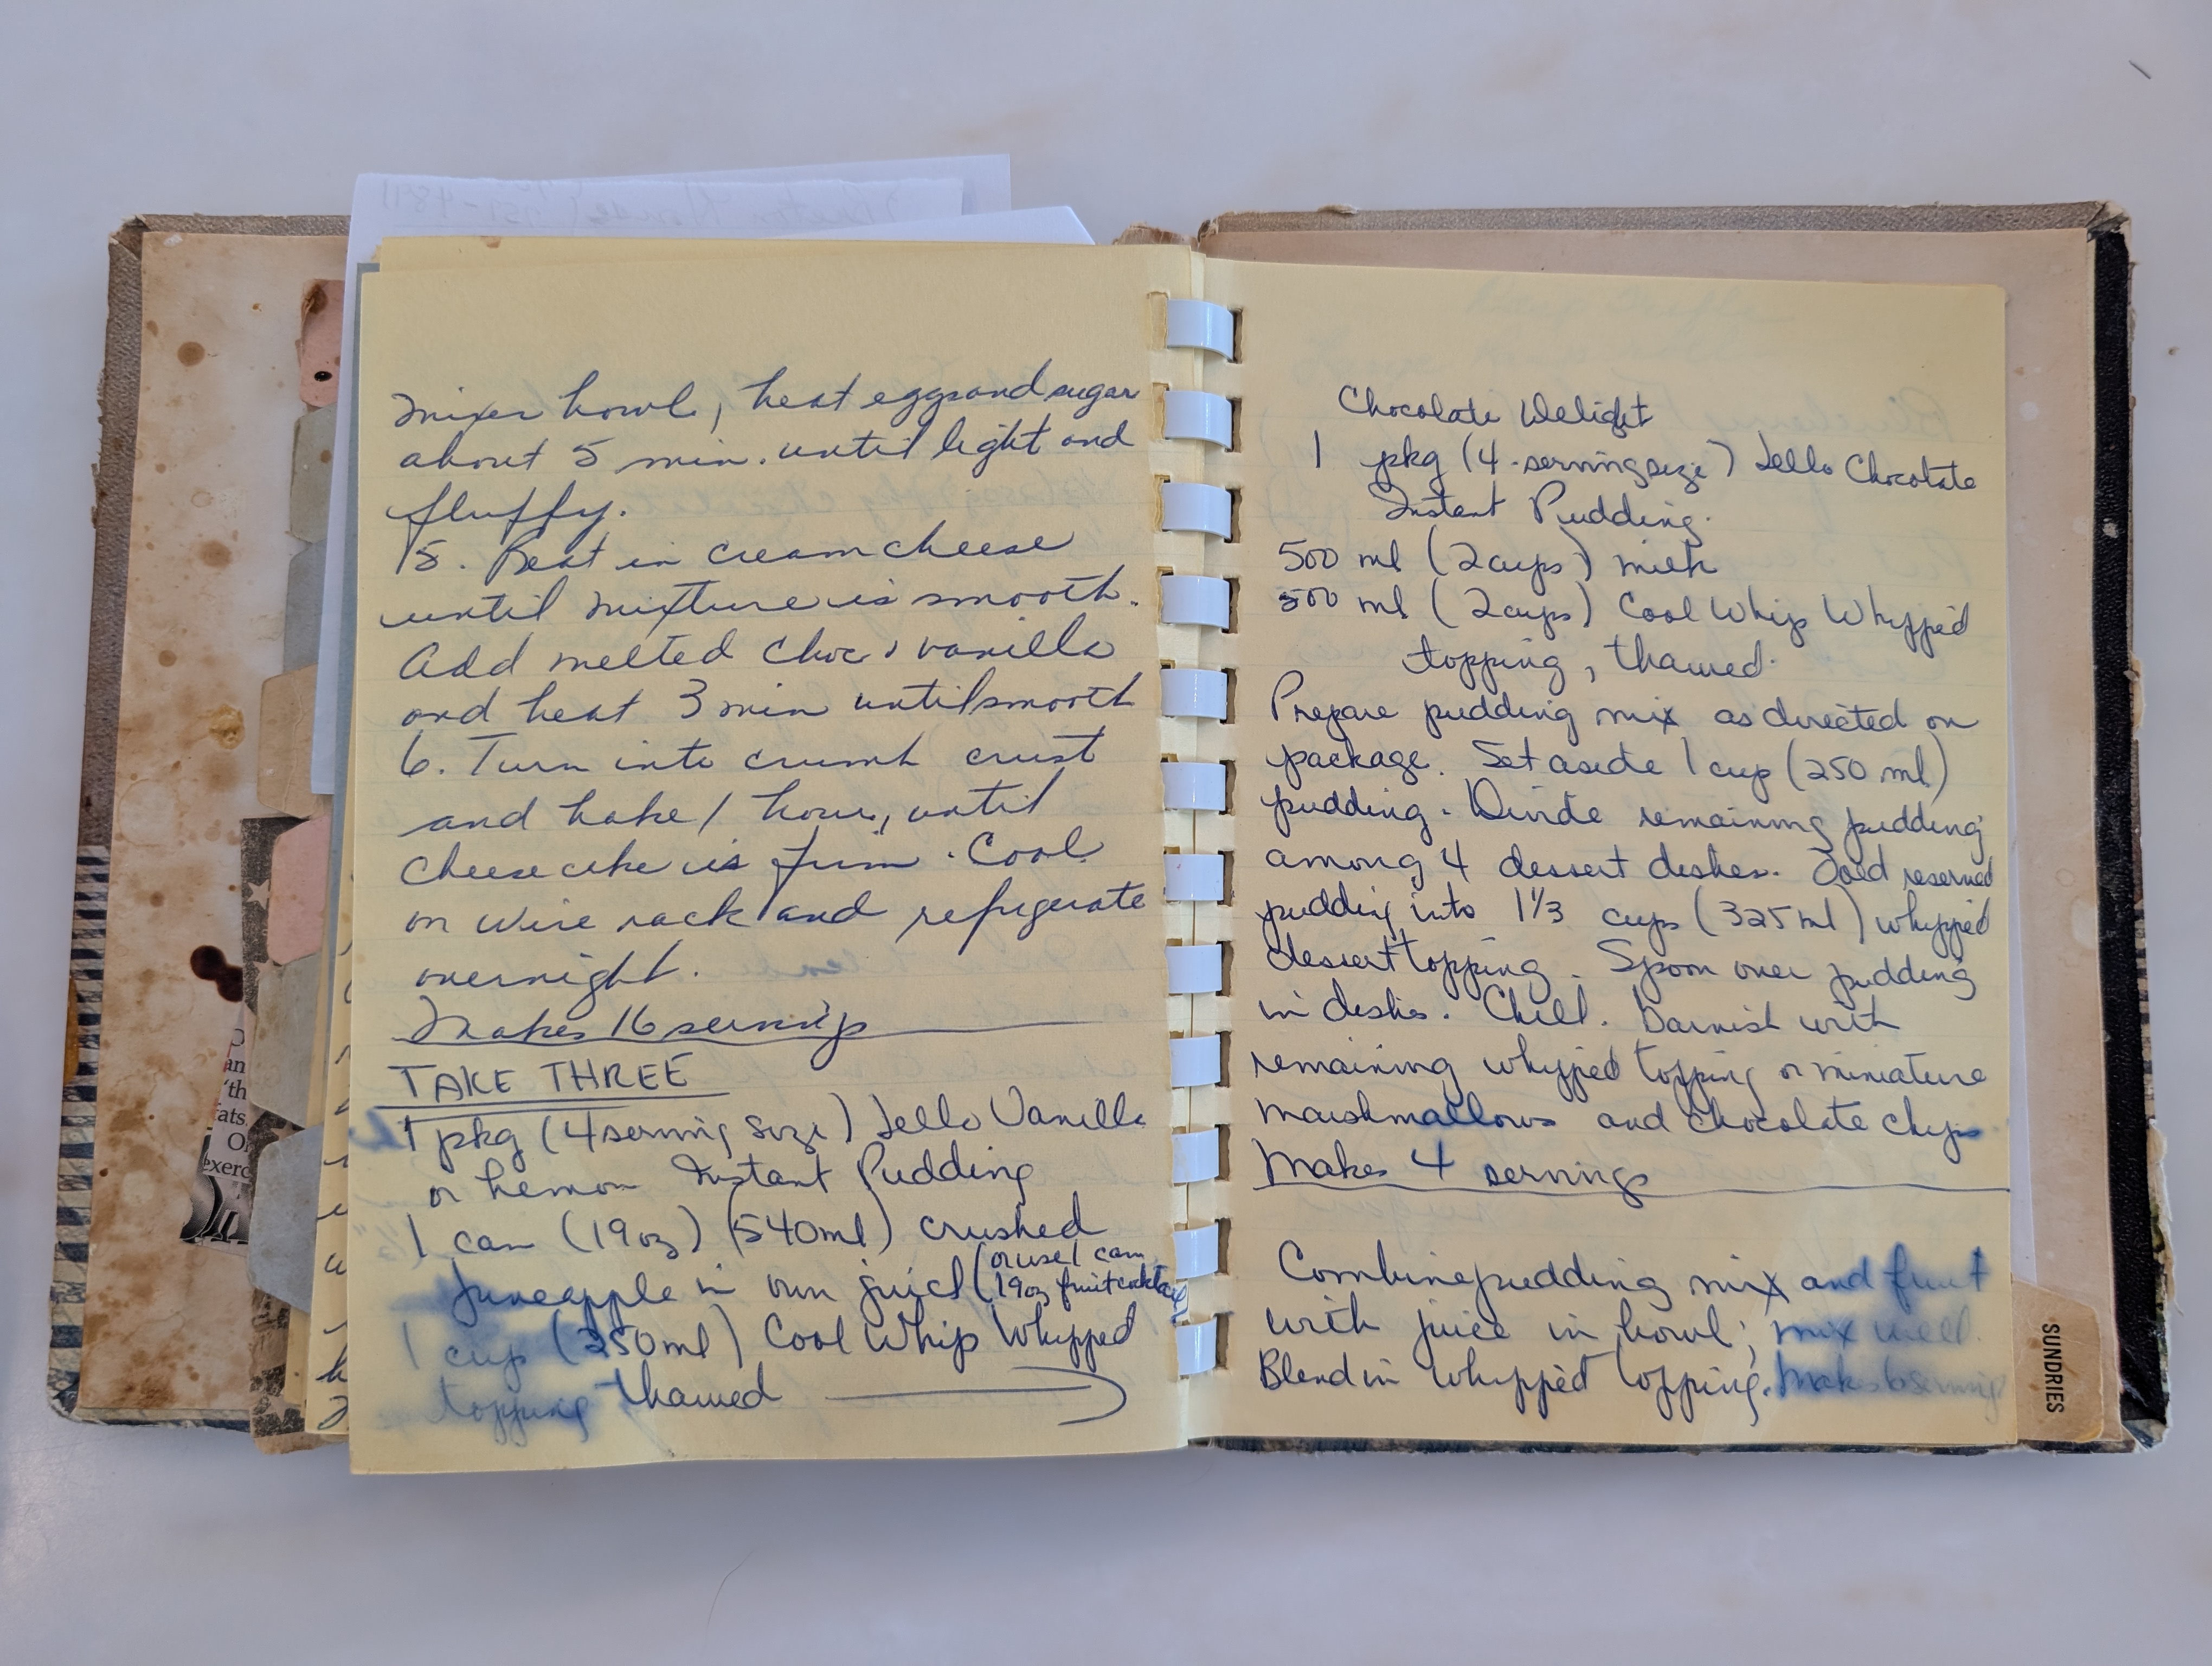 mixer bowl, beat eggs and sugar
about 5 min. until light and
fluffy.
5. Beat in cream cheese
until mixture is smooth.
Add melted choc, vanilla
and beat 3 min until smooth
6. Turn into crumb crust
and bake 1 hour, until
cheese cake is firm. Cool
on wire rack and refrigerate
overnight.
Makes 16 servings
TAKE THREE
1 pkg (4 serving size) Jello Vanilla
or Lemon Instant Pudding
1 can (19 oz) (540 ml) crushed
pineapple in own juice (or use 1 can
19 oz fruit cocktail)
1 cup (250 ml) Cool Whip Whipped
topping thawed
Chocolate Delight
1 pkg (4-serving size) Jello Chocolate
Instant Pudding.
500 ml (2 cups) milk
500 ml (2 cups) Cool Whip Whipped
topping, thawed.
Prepare pudding mix as directed on
package. Set aside 1 cup (250 ml)
pudding. Divide remaining pudding
among 4 dessert dishes. Fold reserved
pudding into 1 1/3 cups (325 ml) whipped
dessert topping. Spoon over pudding
in dishes. Chill. Garnish with
remaining whipped topping or miniature
marshmallows and chocolate chips
Makes 4 servings
Combine pudding mix and fruit
with juice in bowl; mix well.
Blend in whipped topping. Makes 6 servings
SUNDRIES
an
'th
fats,
exerc